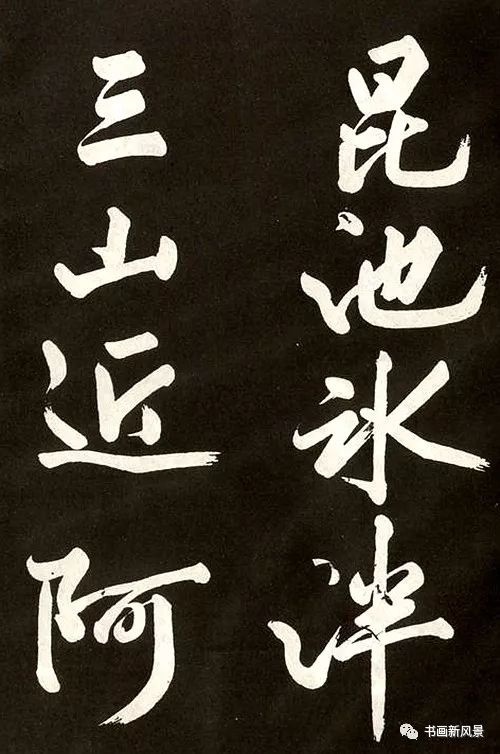 昆池冰泮
三山近阿
书画新风景